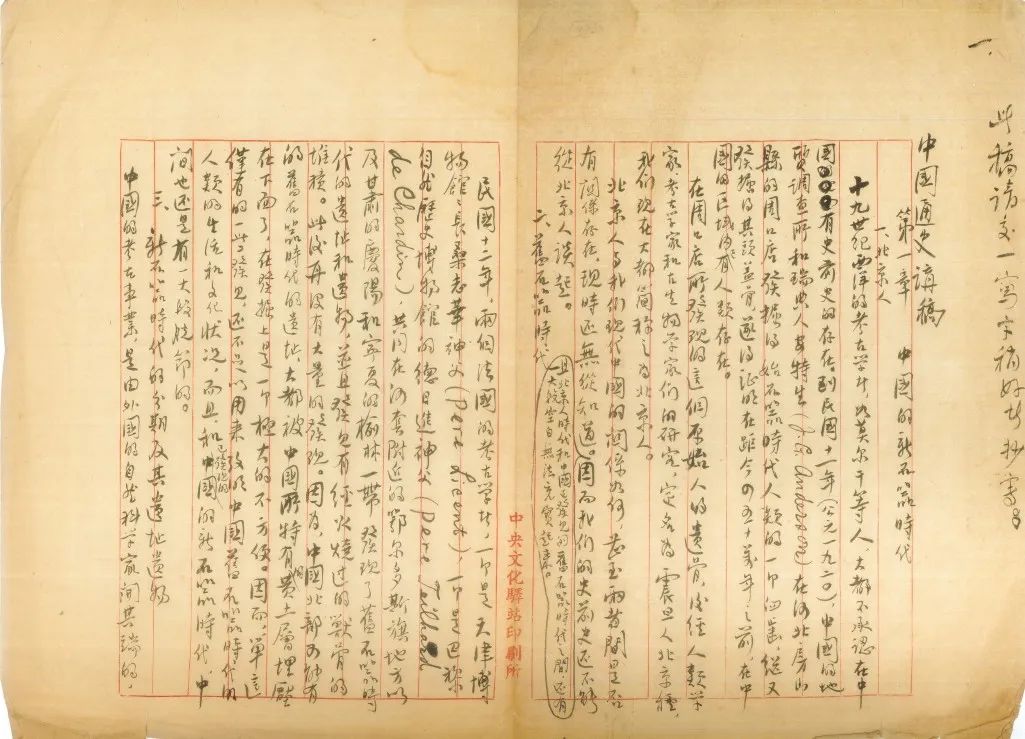 一、
此稿请交一写字稍好者抄写
中國通史講稿
第一章 中國的新石器時代
一、北京人
十九世紀西洋的考古学者，如莫尔干等人，大都不承認在中
國有史前史的存在到民國十一年（公元一九二〇），中國的地
質調查所和瑞典人安特生（J.G. Anderson）在河北房山
縣的周口店發掘得始石器時代人類的一个臼齒，继又
發掘得其頭盖骨遂得証明在距今四五十萬年之前，在中
國的区域内就有人類存在。
在周口店所發現的這個原始人的遺骨，后經人類学
家，考古学家和古生物学家們的研究，定名為震旦人北京種，
我們現在大都简称之為北京人。
北京人与我們现代中國的関係如何，甚至兩者間是否
有関係存在，現時还無從知道。因而我們的史前史还不能
從北京人談起。
且北京人時代和中國已發見的舊石器時代之間，还有
大段空白無法充實起來。
二、舊石器時代
中央文化驛站印刷所
民國十二年，兩個法國的考古学者，一个是天津博
物館館長桑志華神父（Pere Licent），一个是巴黎
自然歷史博物館的德日進神父（Pere Teilhard
de Chardin），共同在河套附近的鄂尔多斯旗地方以
及甘肃的慶陽和寧夏的榆林一帶發現了舊石器時
代的遺址和遺物，並且發見有經火燒过的獸骨的
堆積。此後再没有大量的發現。因為，中國北部的所有
的舊石器時代的遺址，大都被中國所特有的黄土層埋壓
在下面了，在發掘上是一个極大的不方便。因而單這
僅有的一些發見，还不足以用來致明中國舊石器時代的
人類的生活和文化狀況，而且和已發現的中國的新石器時代，中
間也还是有一大段脱節的。
三、新石器時代的分期及其遺址遺物
中國的考古事業，是由外國的自然科学家開其端的，